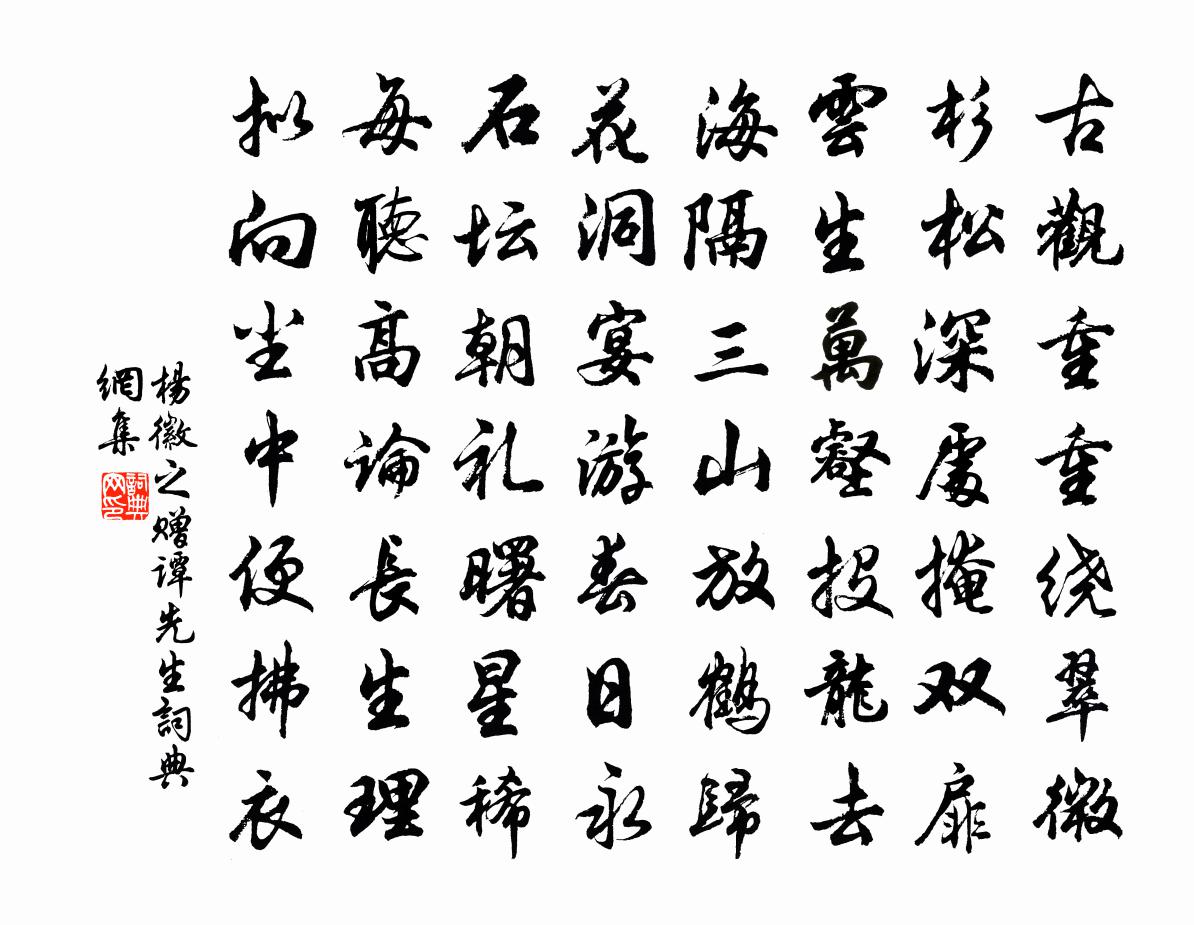 古觀重重绕翠微
杉松深處掩双扉
雲生萬壑投龍去
海隔三山放鶴歸
花洞宴游春日永
石坛朝礼曙星稀
每聽高論長生理
拟向尘中便拂衣
楊徽之赠谭先生詞典
網集
詞典
网印